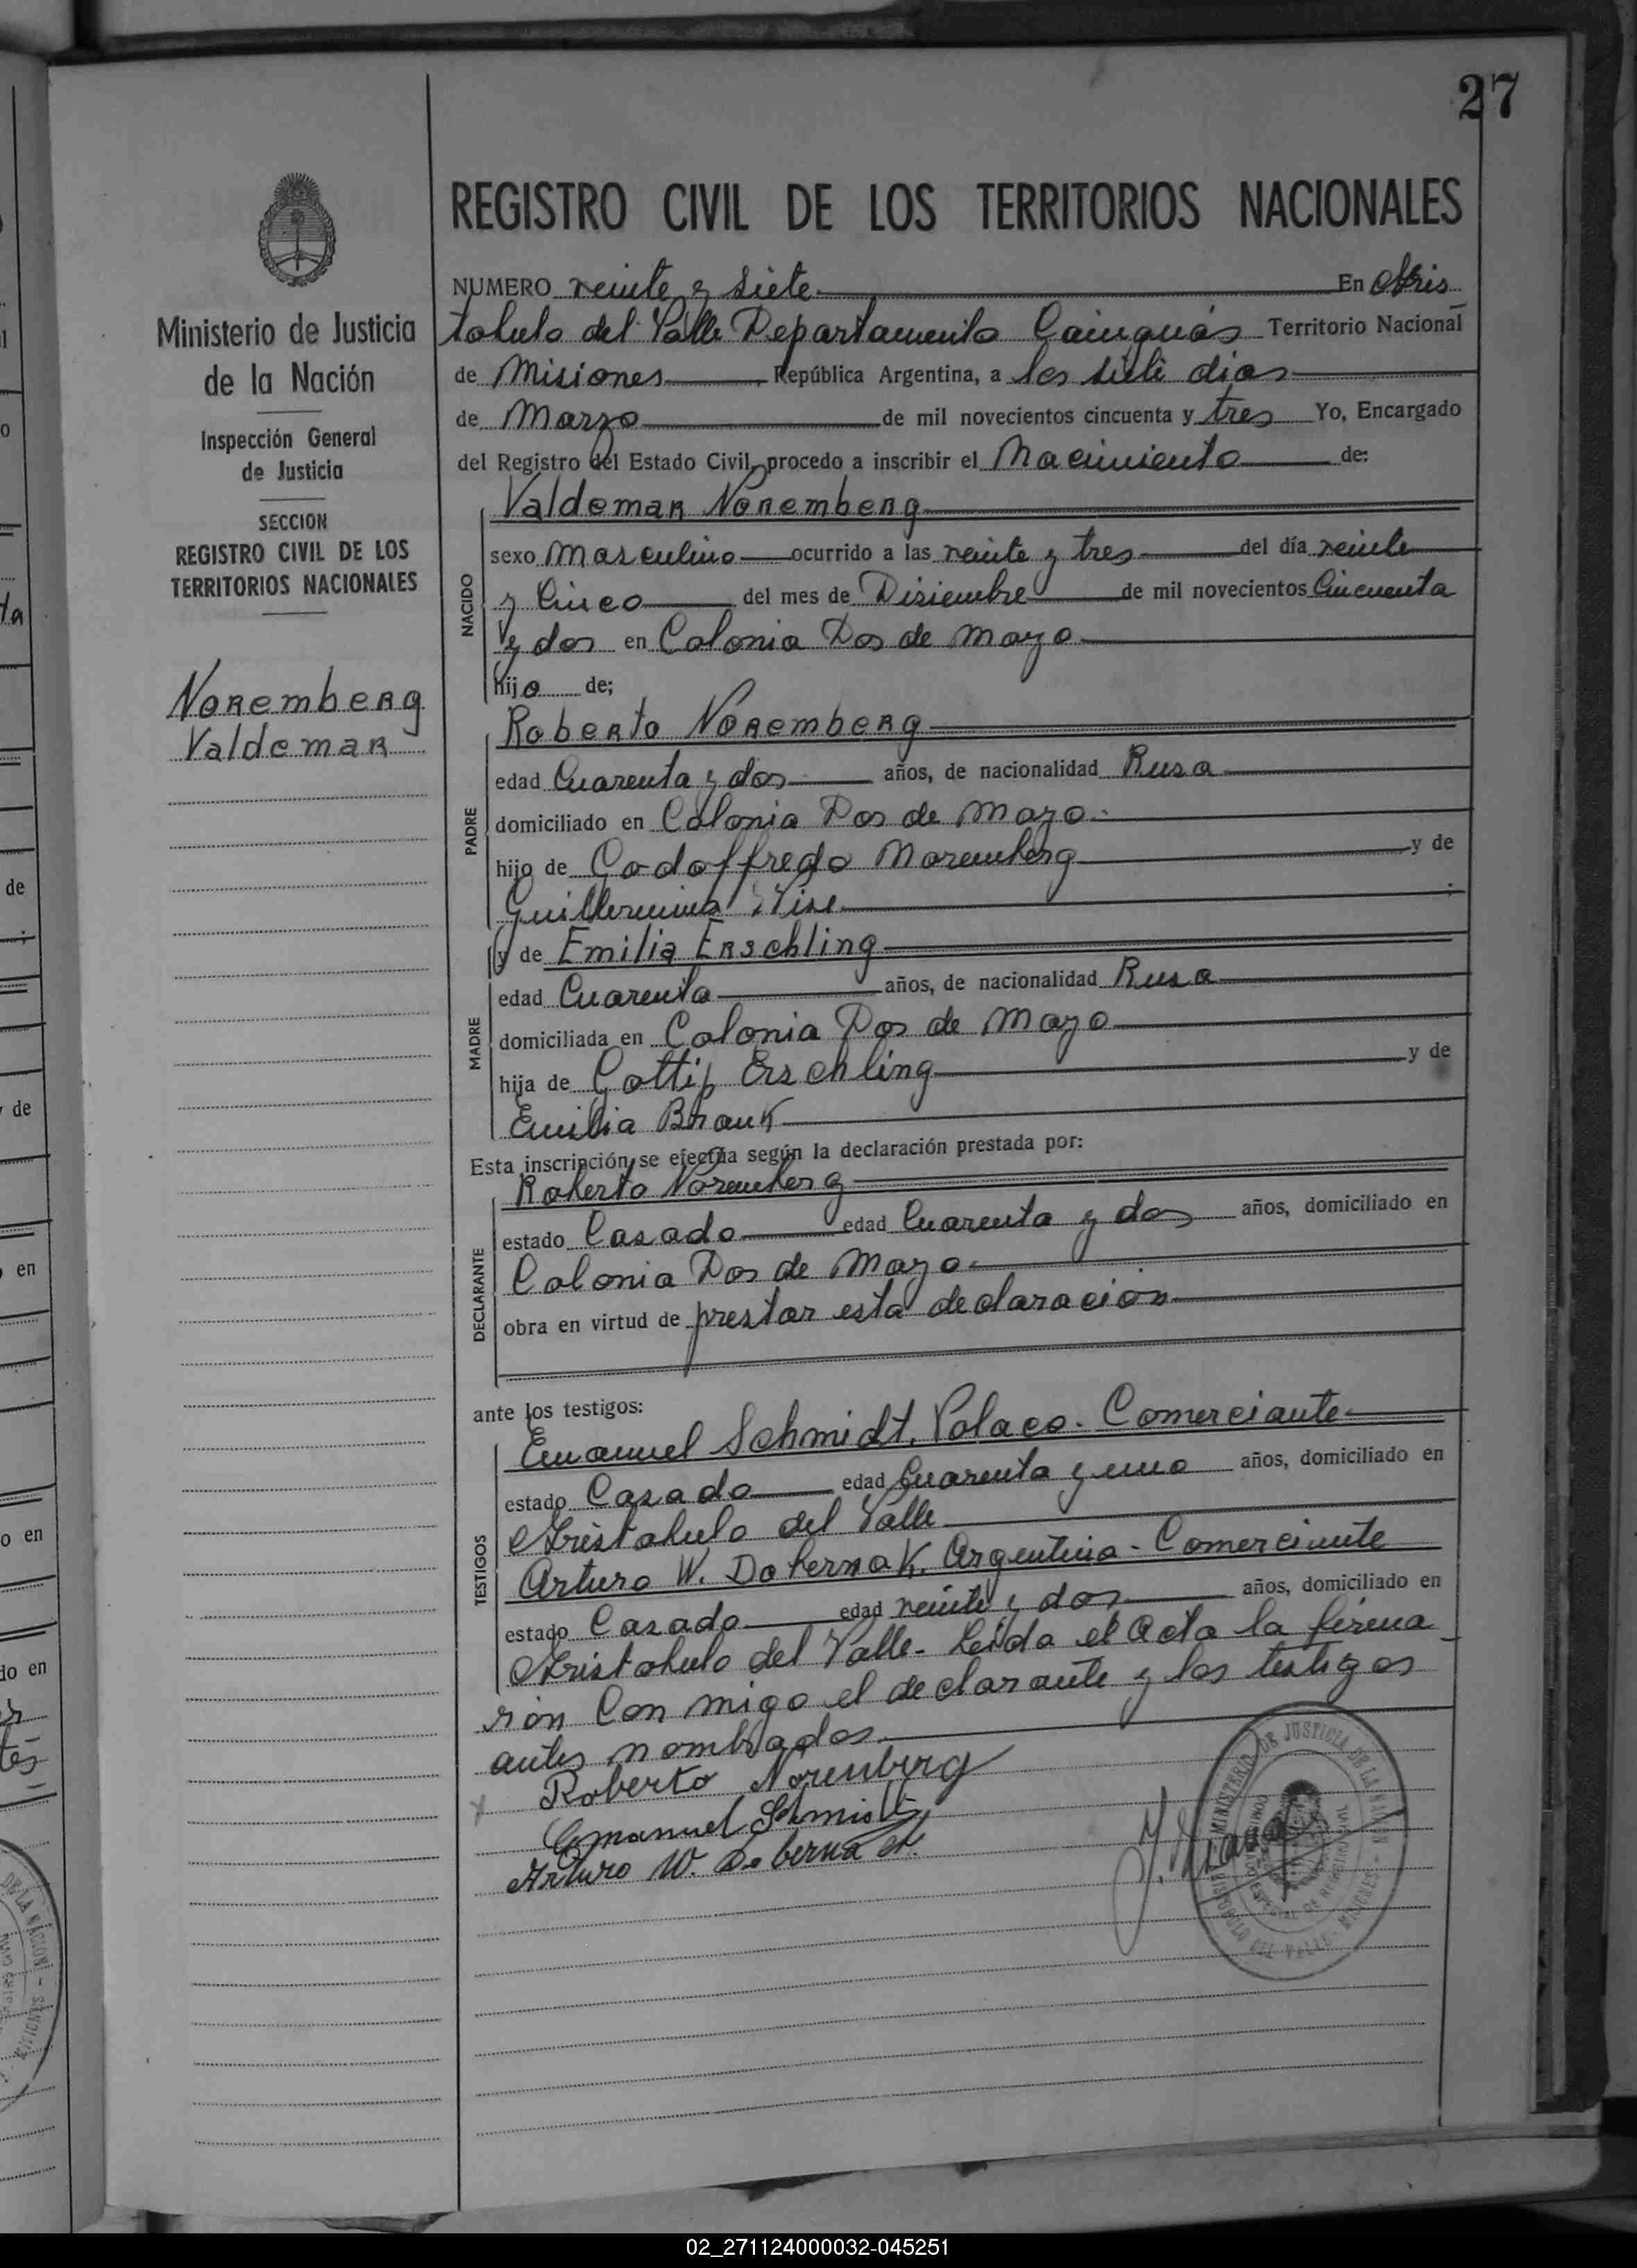 27
REGISTRO CIVIL DE LOS TERRITORIOS NACIONALES
Ministerio de Justicia
de la Nación
Inspección General
de Justicia
SECCION
REGISTRO CIVIL DE LOS
TERRITORIOS NACIONALES
Noremberg
Valdemar
NUMERO veinte y siete En Aris
tobulo del Valle Departamento Cainguás Territorio Nacional
de Misiones República Argentina, a los siete dias
de Marzo de mil novecientos cincuenta y tres Yo, Encargado
del Registro del Estado Civil, procedo a inscribir el Nacimiento de:
NACIDO
Valdemar Noremberg
sexo Masculino ocurrido a las veinte y tres del día veinte
y Cinco del mes de Disiembre de mil novecientos Cincuenta
y dos en Colonia Dos de Mayo
hijo de;
PADRE
Roberto Noremberg
edad Cuarenta y dos años, de nacionalidad Rusa
domiciliado en Colonia Dos de Mayo.
hijo de Godoffredo Noremberg y de
Guillermina ;
y de Emilia Erschling
MADRE
edad Cuarenta años, de nacionalidad Rusa
domiciliada en Colonia Dos de Mayo
hija de Gottip Erschling y de
Emilia Brauk
Esta inscripción se efectúa según la declaración prestada por:
DECLARANTE
Roberto Noremberg
estado Casado edad Cuarenta y dos años, domiciliado en
Colonia Dos de Mayo.
obra en virtud de prestar esta declaración
ante los testigos:
TESTIGOS
Emanuel Schmidt, Polaco. Comerciante
estado Casado edad Cuarenta y uno años, domiciliado en
Aristobulo del Valle
Arturo W. Dobernak. Argentina - Comerciante
estado Casado edad veinte y dos años, domiciliado en
Aristobulo del Valle - Leida el Acta la firma
ron Con migo el declarante y los testigos
antes nombrados.
Roberto Norenberg
Emanuel Schmidt
Arturo W. Dobernak.
MINISTERIO DE JUSTICIA DE LA NACION - MISIONES -
02_271124000032-045251